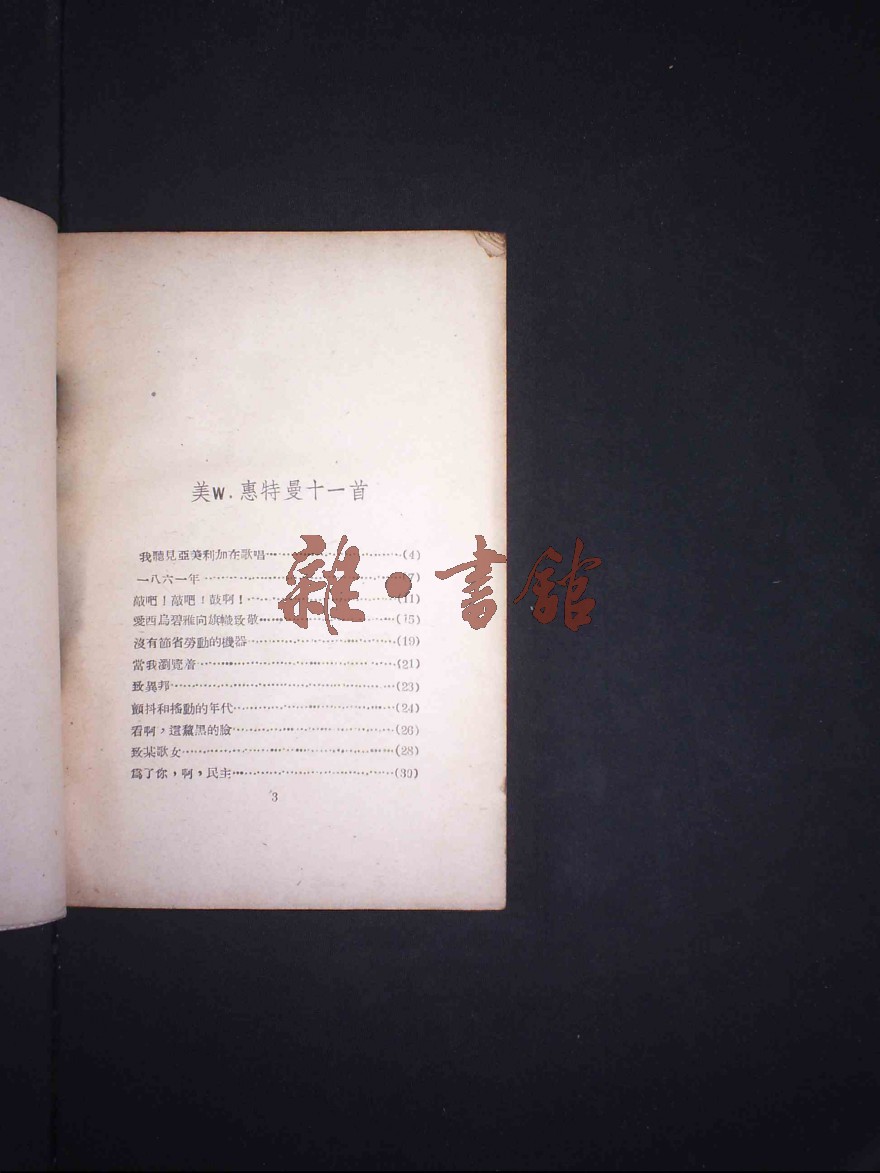 美W.惠特曼十一首
我聽見亞美利加在歌唱……………………(4)
一八六一年……………………(7)
敲吧！敲吧！鼓啊！……………………(11)
愛西烏碧雅向旗幟致敬……………………(15)
沒有節省勞動的機器……………………(19)
當我瀏覽着……………………(21)
致異邦……………………(23)
顫抖和搖動的年代……………………(24)
看啊，這黧黑的臉……………………(26)
致某歌女……………………(28)
爲了你，啊，民主……………………(30)
3
雜·書館